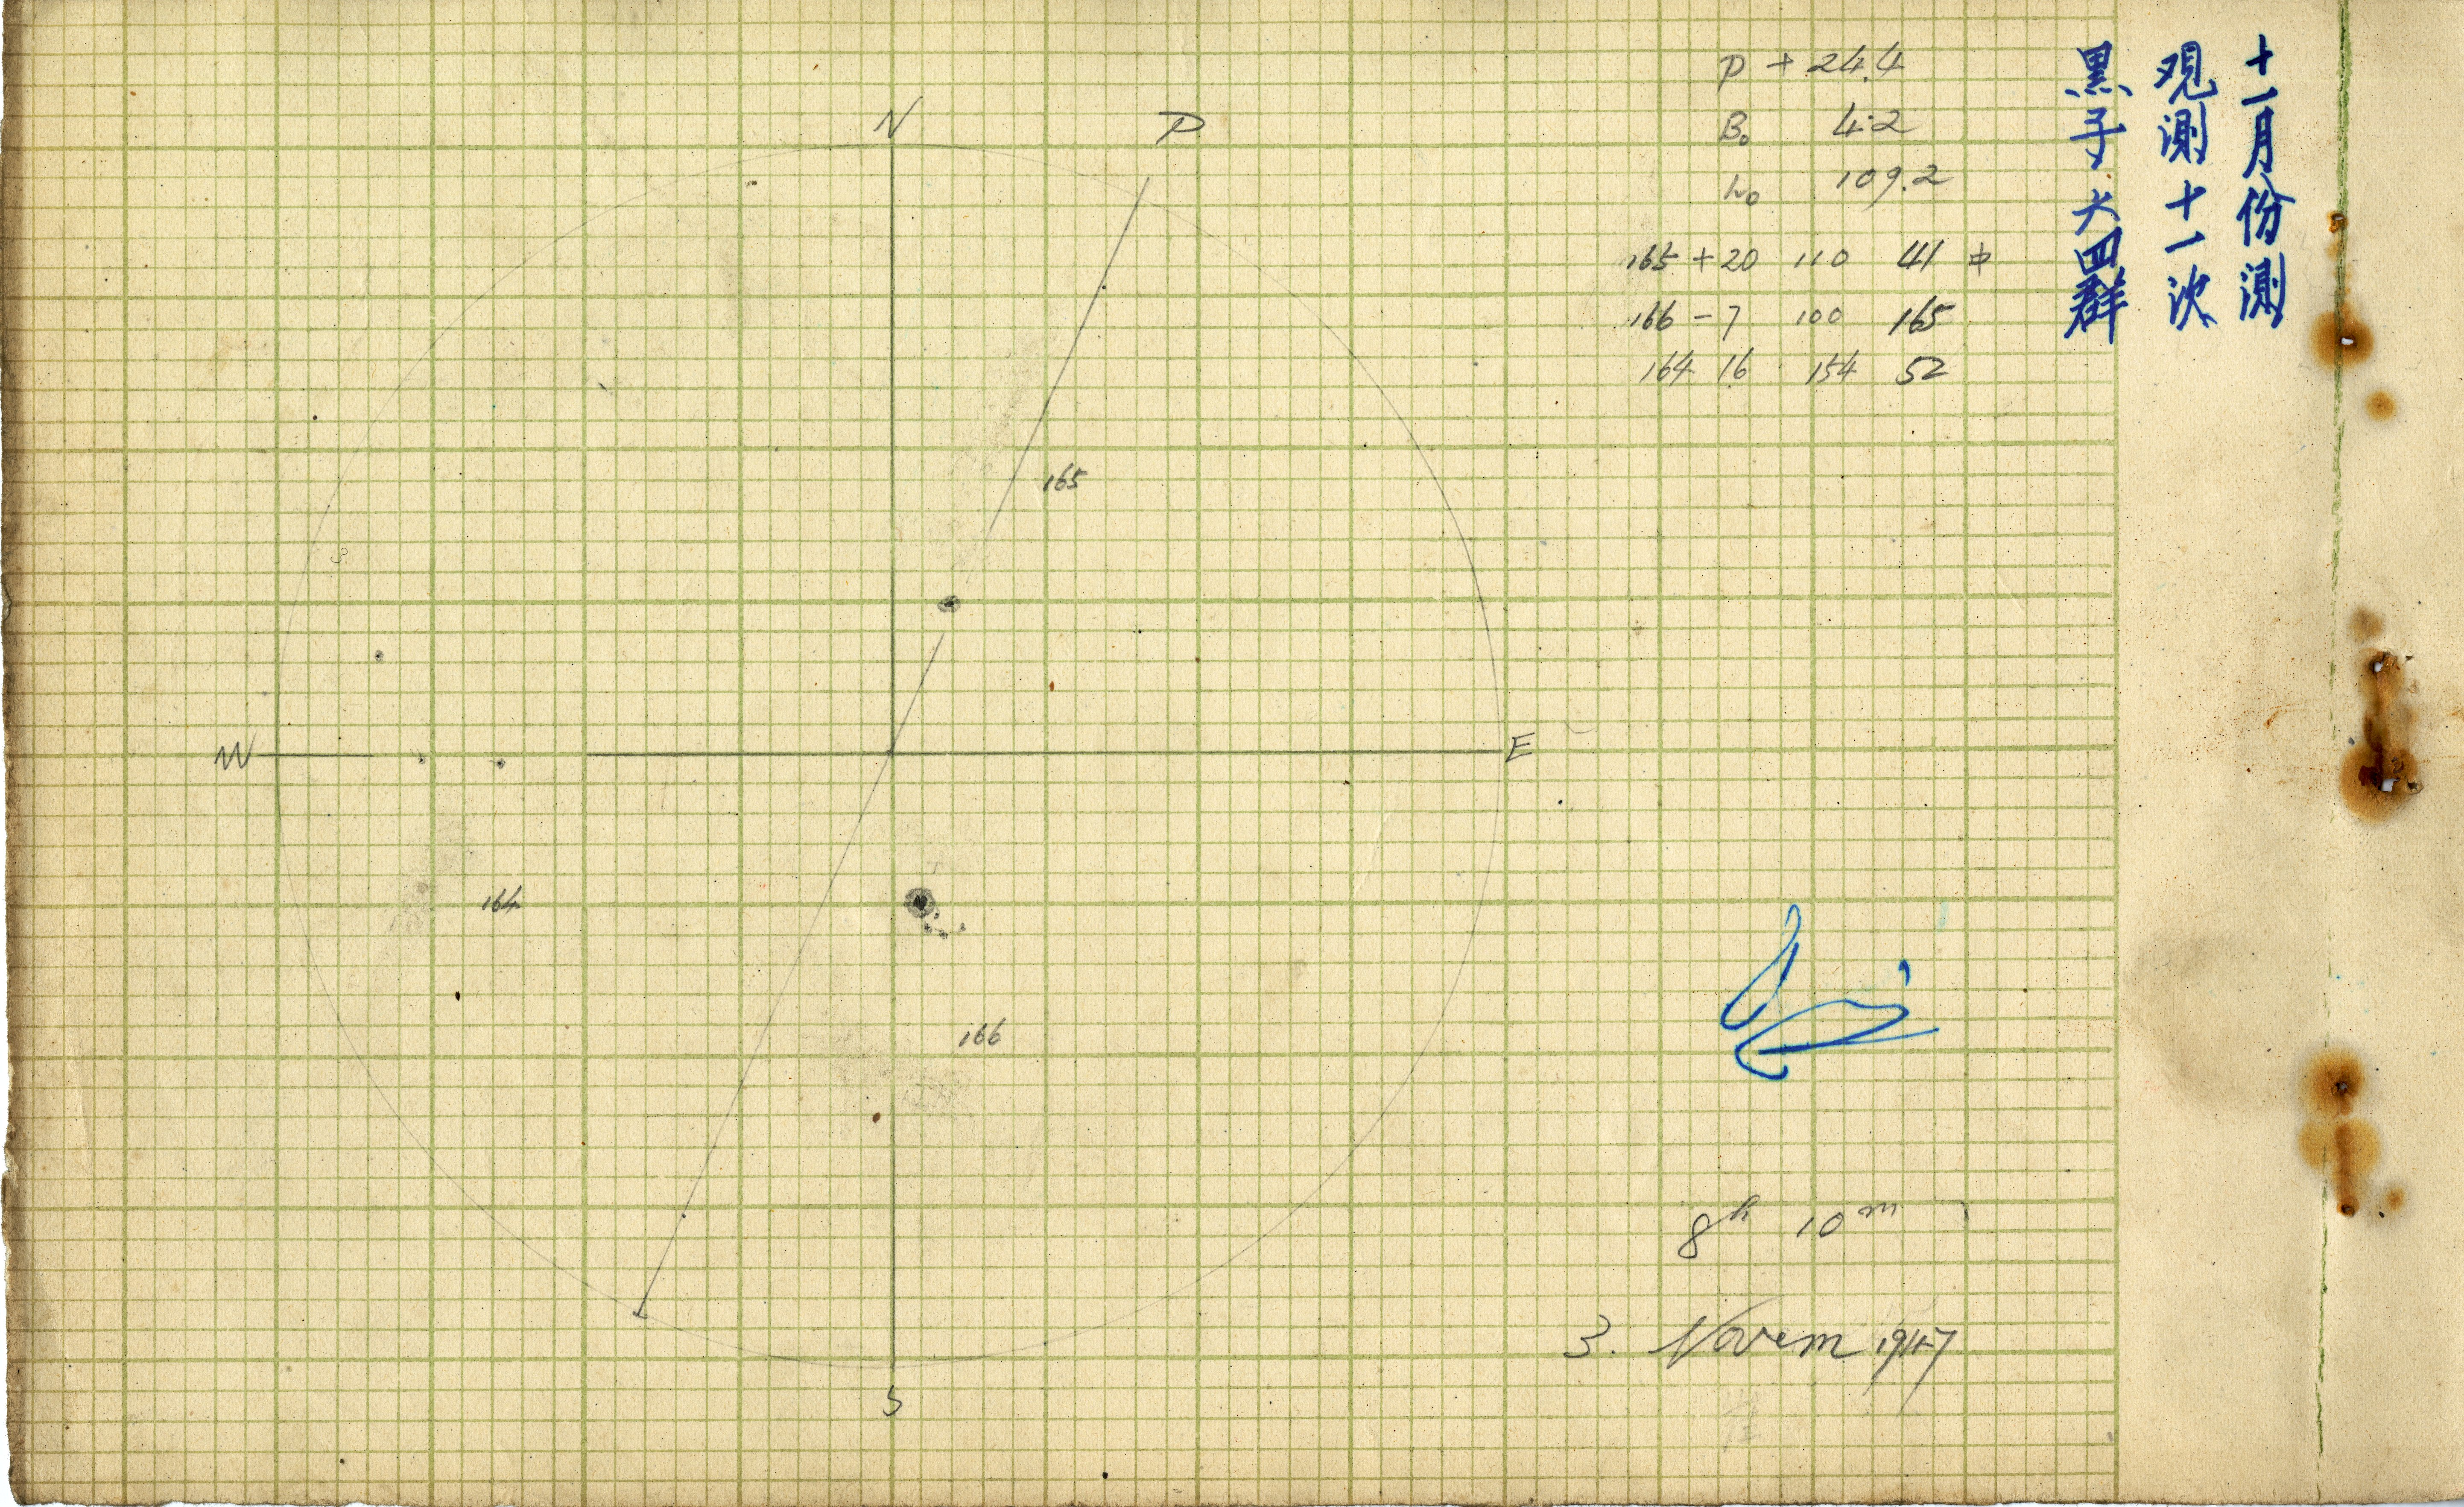 十一月份測
观測十一次
黑子六四群
P + 24.4
B₀ 4.2
L₀ 109.2
165 + 20 110 41
166 - 7 100 165
164 16 154 52
N P
165
W E
164
166
S
8ʰ 10ᵐ
3. Novem 1947